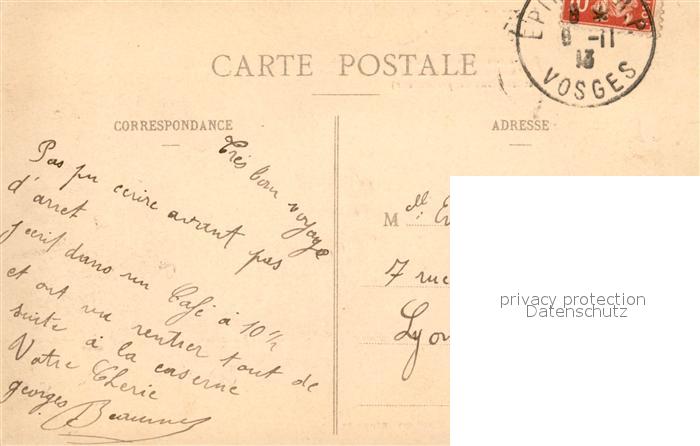 EPINAL
8 *
8 -11
13
VOSGES
CARTE POSTALE
CORRESPONDANCE
ADRESSE
Très bon voyage
Pas pu ecrire avant pas
d'arret
j'ecris dans un Café à 10 h
et ont va rentrer tout de
suite à la caserne
Votre Cherie
georges
M elle
7 rue
Lyon
privacy protection
Datenschutz